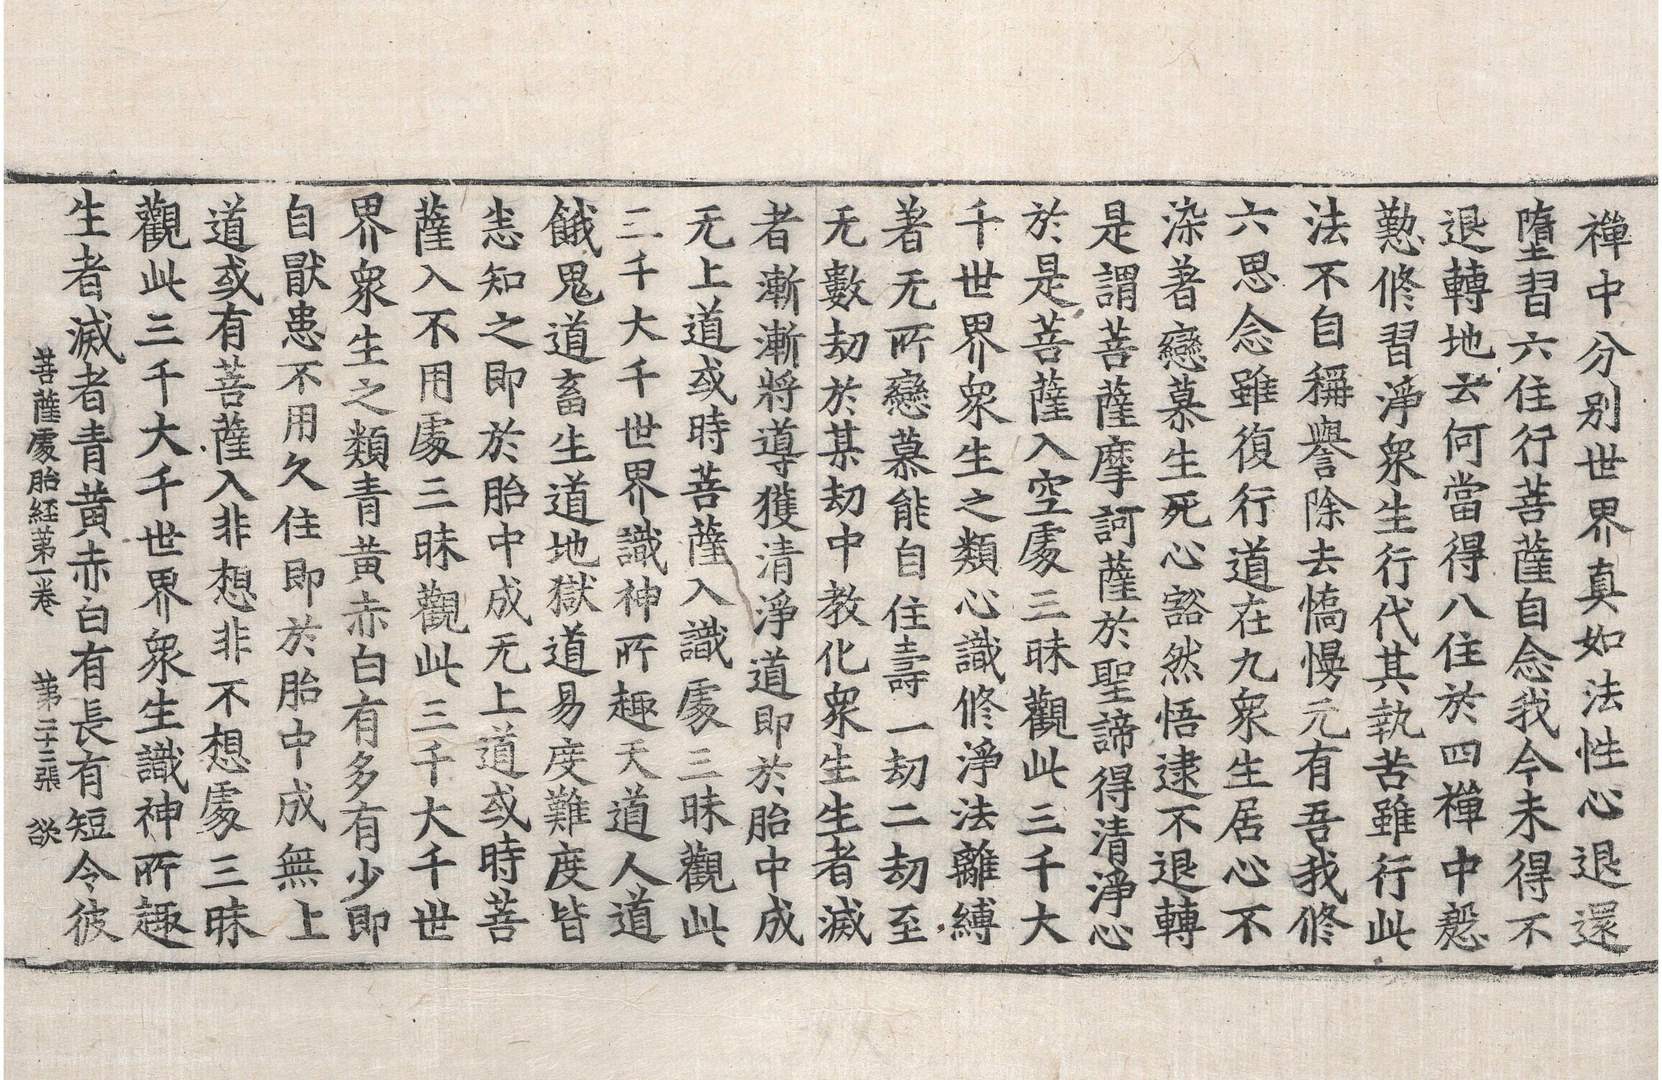 禪中分別世界真如法性心退還
墮習六住行菩薩自念我今未得不
退轉地云何當得八住於四禪中慇
懃修習淨衆生行代其執苦雖行此
法不自稱譽除去憍慢元有吾我修
六思念雖復行道在九衆生居心不
染著戀慕生死心豁然悟逮不退轉
是謂菩薩摩訶薩於聖諦得清淨心
於是菩薩入空處三昧觀此三千大
千世界衆生之類心識修淨法離縛
著无所戀慕能自住壽一劫二劫至
无數劫於某劫中教化衆生生者滅
者漸漸將導獲清淨道即於胎中成
无上道或時菩薩入識處三昧觀此
三千大千世界識神所趣天道人道
餓鬼道畜生道地獄道易度難度皆
悉知之即於胎中成无上道或時菩
薩入不用處三昧觀此三千大千世
界衆生之類青黃赤白有多有少即
自猒患不用久住即於胎中成無上
道或有菩薩入非想非不想處三昧
觀此三千大千世界衆生識神所趣
生者滅者青黃赤白有長有短令彼
菩薩處胎経苐一卷 苐二十二張 談